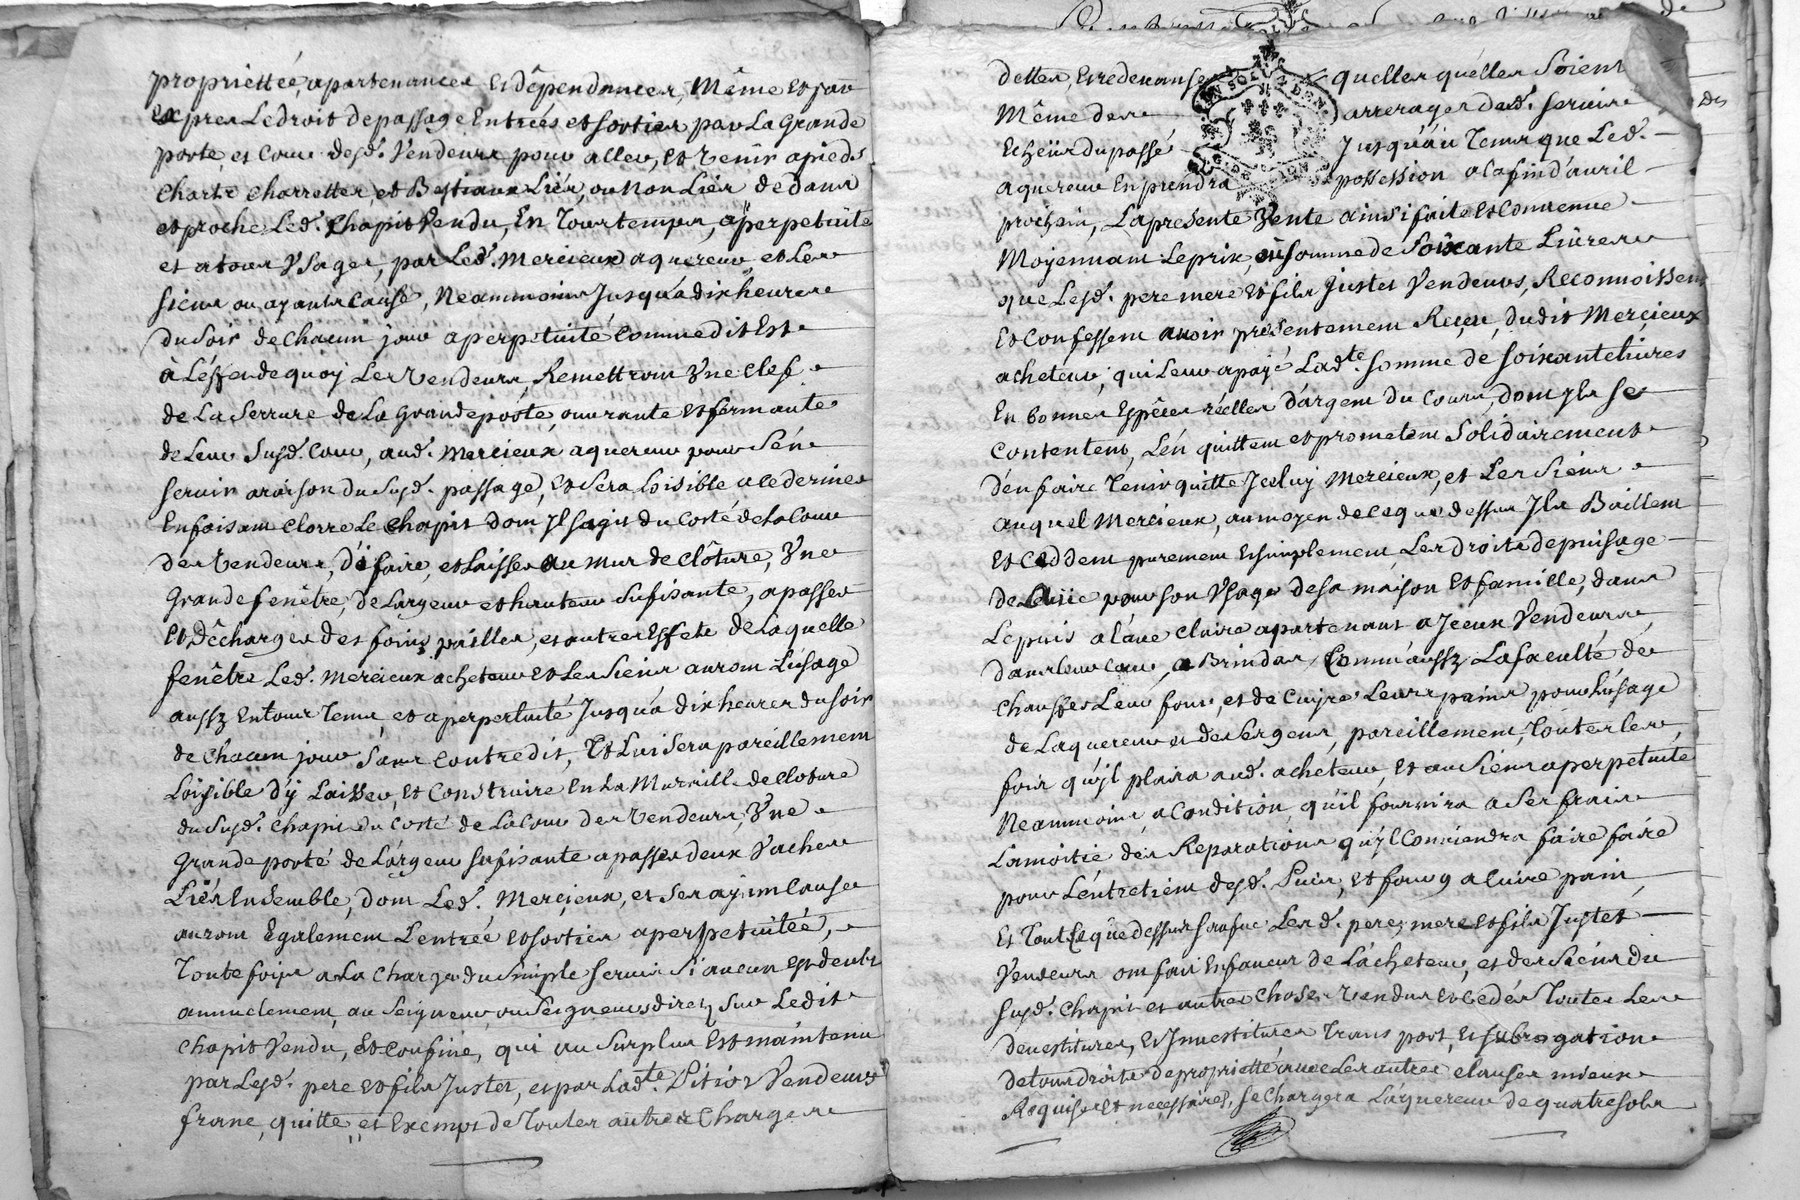 propriettée, apartenances et dépendances, Même et par
exprès Le droit de passage Entrées et sorties par La grande
porte et Cour desd. Vendeurs pour aller, et venir a pieds
Charts Charrettes, et Bestiaux Liés, ou Non Liés dedans
et proche Led. Chapit Vendu, En Tour temps, a perpetuité
et a tous Vsages, par Led. Mercieux aquereur, et Les
siens ou ayants Cause, Neammoins Jusqu'a dix heures
du soir de Chacun jour a perpetuité Comme dit Est
à L'effet de quoy Les Vendeurs, Remettront Vne Clef
de La Serrure de La grande porte, ouurante et fermante
de Leur Susd. Cour, aud. Mercieux aquereur pour S'én
seruir a raison du Susd. passage, et sera Loisible a ce dernier
En faisant Clorre Le Chapit dont Jl sagit du Costé de La Cour
des Vendeurs, d'i faire, et Laisser au mur de Clôture, Vne
grande fenêtre, de Largeur et hauteur sufisante, a passer
et dêcharger des foins pailles, et autres Effets de Laquelle
fenêtre Led. Mercieux acheteur et Les siens auront L'usage
aussy En tour Tems, et a perpertuité Jusqu'a dix heures du soir
de Chacun jour sans Contredit, Et Lui sera pareillement
Loisible d'ÿ Laisser, et Construire En La Muraille de Cloture
du Susd. Chapit du Costé de La Cour des Vendeurs, Vne
grande porte de Largeur sufisante a passer deux Vaches
Liés Ensemble, dont Led. Mercieux, et ses aÿant Cause
auront Egalement L'entrée et sorties a perpetuitée,
Toutefois a La Charge du simple seruis si aucun est deub
annuelement, au Seigneur, ou Seigneurs direts sur Ledit
Chapit Vendu, Et Confiné, qui au surplus Est maintenu
par Lesd. pere et fils Justet, et par Lad.te Vendeurs
franc, quitte, et Exempt de Toutes autres Charges
dettes, Et redeuanses quelles quélles Soient
Même des arrerages desd. seruis
Echeüs du passé Jusqu'au Tems que Led.
aquereur En prendra possession a la fin d'auril
prochain, La presente Vente ainsi faite et Conuenue
Moyennant Le prix, et somme de Soixante Liures
que Lesd. pere mere et fils Justet Vendeurs, Reconnoissent
Et Confessent auoir presentement Reçeu, dudit Mercieux
acheteur, qui Leur a payé Lad.te somme de soixante liures
En bonnes Espêces réelles d'argent du Cours, dont Jls se
Contentent, L'én quittent et prometent Solidairement
d'én faire Tenir quitte Jceluy Mercieux, et Les siens
auquel Mercieux, au moyen de ce que dessus Jls Baillent
et Cèddent purement et simplement Les droits de puisage
de L'auie pour son Vsage de sa maison et famille, dans
Le puis a l'áue Claire apartenant a Jceux Vendeurs,
dans leur Cour, a Brindas, Comm'aussy La faculté de
Chauffer Leur four, et de Cuire Leurs pains pour L'usage
de L'aquereur et des sergeur, pareillement, Toutes les
fois qu'jl plaira aud. acheteur, et au siens a perpetuité
Neammoins a Condition, qu'il fournira a Ses frais
La moitié des Reparations qu'jl Conuiendra faire faire
pour L'éntretient desd. Puis, et four, a Cuire pain,
Et Tout Ce que dessus Lesd. pere, mere et fils Justet
Vendeurs ont fait En faueur de L'ácheteur, et des siéns du
susd. Chapit et autres Choses Vendus et Cedés Toutes Les
deuestitures, et Inuestitures Transport, et subrogation
de tous droits de proprietté auec Les autres Clauses mieux
Requises et necessaires, se Chargera L'áquereur de quatre sols